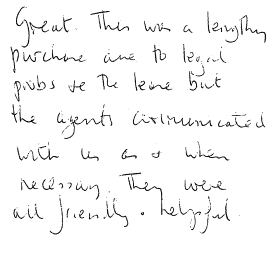 Great. This was a lengthy
purchase due to legal
probs re the lease but
the agents communicated
with us as & when
necessary. They were
all friendly & helpful.